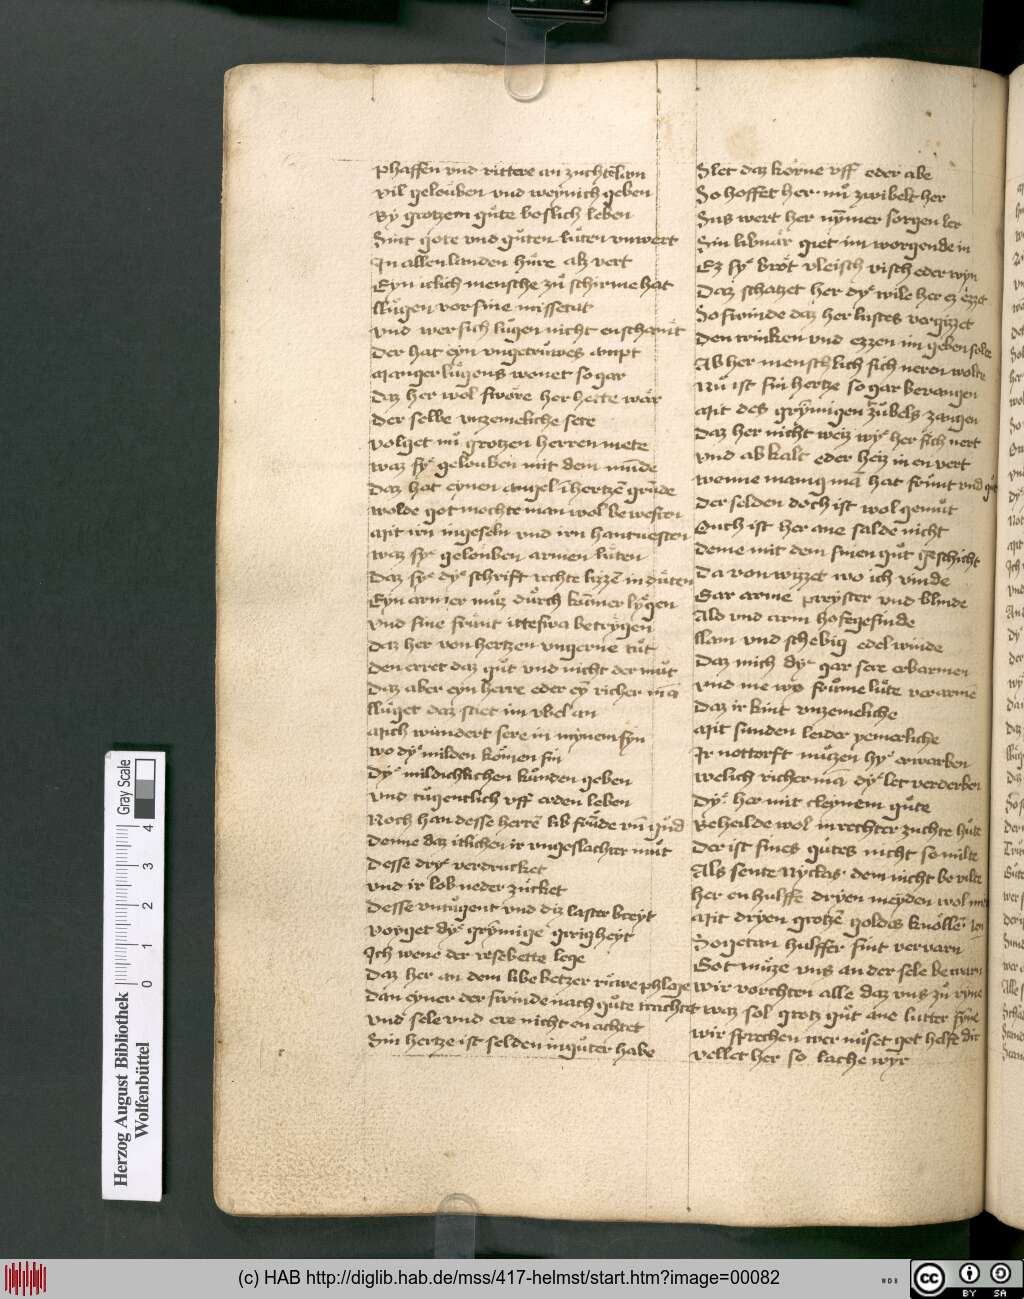 Phaffen vnd rittere an zuchte lam
Vil gelouben vnd weynich geben
By grotzem gute boslich leben
Sint gote vnd guten luten vnwert
In allen landen hure alz vert
Eyn iclich mensche zu schirme hat
Lugen vor sine missetat
Vnd wer sich lugen nicht enschamt
Der hat eyn vngetruwes ampt
Manger lugens wonet so gar
Daz her wol swore her hette war
Der selbe vnzemeliche sete
Volget nu grotzen herren mete
Waz sye gelouben mit dem munde
Daz hat eynen angel in hertzen grunde
Wolde got mochte man wol bewesten
Mit irn ingeseln vnd irn hantuesten
Waz sye gelouben armen luten
Daz sye dye schrift rechte lizzen in duten
Eyn armer muz durch kummer lygen
Vnd sine frunt itteswa betrygen
Daz her von hertzen vngerne tut
Den erret daz gut vnd nicht der mut
Daz aber eyn herre eder ey richer ma
Luget daz stet im vbel an
Mich wundert sere in mynem syn
Wo dye milden komen sin
Dye mildichlichen kunden geben
Vnd tugentlich vff erden leben
Noch han desse herre lib frude vn gud
Denne daz itlichen ir vngeslachter mut
Desse drye verdrucket
Vnd ir lob neder zucket
Desse vntugent vnd diz laster breyt
Voyget dye grymmige girigheyt
Ich wene der resebette lege
Daz her an dem libe betzer ruwe phlage
Dan eyner der swinde nach gute trachtet
Vnd sele vnd ere nicht en achtet
Sin hertze ist selden in guter habe
Slet daz korne vff eder abe
So hoffet her nu zwibelt her
Sus wert her nymmer sorgen ler
Sin libnar giet im worgende in
Ez sye brot vleisch visch eder wyn
Daz schatzet her dye wile her ez ezzet
So swinde daz her lustes vergizzet
Den trinken vnd ezzen im geben solte
Ab her menschlich sich neren wolte
Nu ist sin hertze so gar bevangen
Mit des grymmigen zubels zangen
Daz her nicht weiz wye her sich nert
Vnd ab kalt eder heiz in en vert
Wenne manig ma hat frunt vnd gut
Der selden doch ist wol gemut
Ouch ist her ane salde nicht
Deme mit dem sinen gut geschicht
Da von wizzet wo ich vinde
Gar arme preyster vnd blinde
Ald vnd arm hofegesinde
Lam vnd schebig edel winde
Daz mich dye gar sere erbarmen
Vnd me wo frume lute verarme
Daz ir kint vnzemeliche
Mit sunden leider pemerliche
Ir nottorft muzen hye erwarben
Welich richer ma dye let verderben
Dye her mit cleynem gute
Beheilde wol in rechter zuchte hute
Der ist sines gutes nicht so milte
Als sente Nyclas dem nicht bevilte
Her en hulffe dryen meyden wol
Mit dryen grotze goldes knollen
Sogetan hulffer sint vervarn
Got muze vns an der sele bewarn
Wir vorchten alle daz vns zu ryne
Waz sol grotz gut ane lutter pyne
Wir sprechen wer nuset got helfe dir
Vellet her so lache wyr
(c) HAB http://diglib.hab.de/mss/417-helmst/start.htm?image=00082
Herzog August Bibliothek
Wolfenbüttel
Gray Scale
0 1 2 3 4
cc BY SA